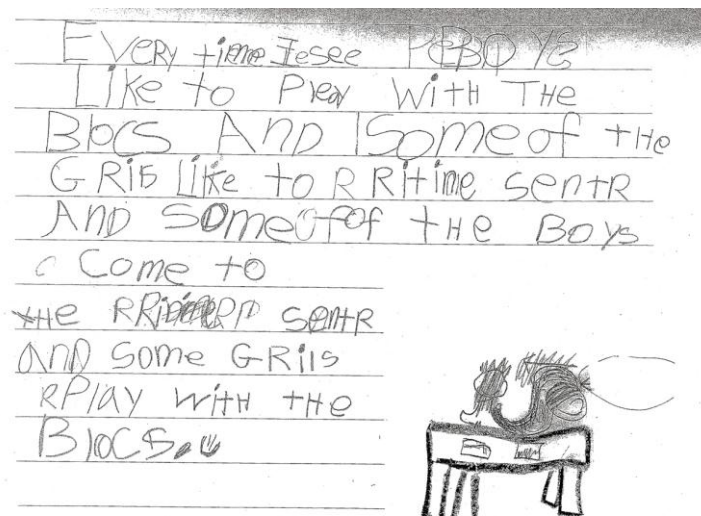 EVeRy time Iesee PEBOYS
LiKe to Play WitH THe
BlocS AND Some of tHe
GRils Like to RRitime sentR
AND Some of of tHe Boys
Come to
tHe sentR
AnD Some GRils
RPlAY witH tHe
BlocS.